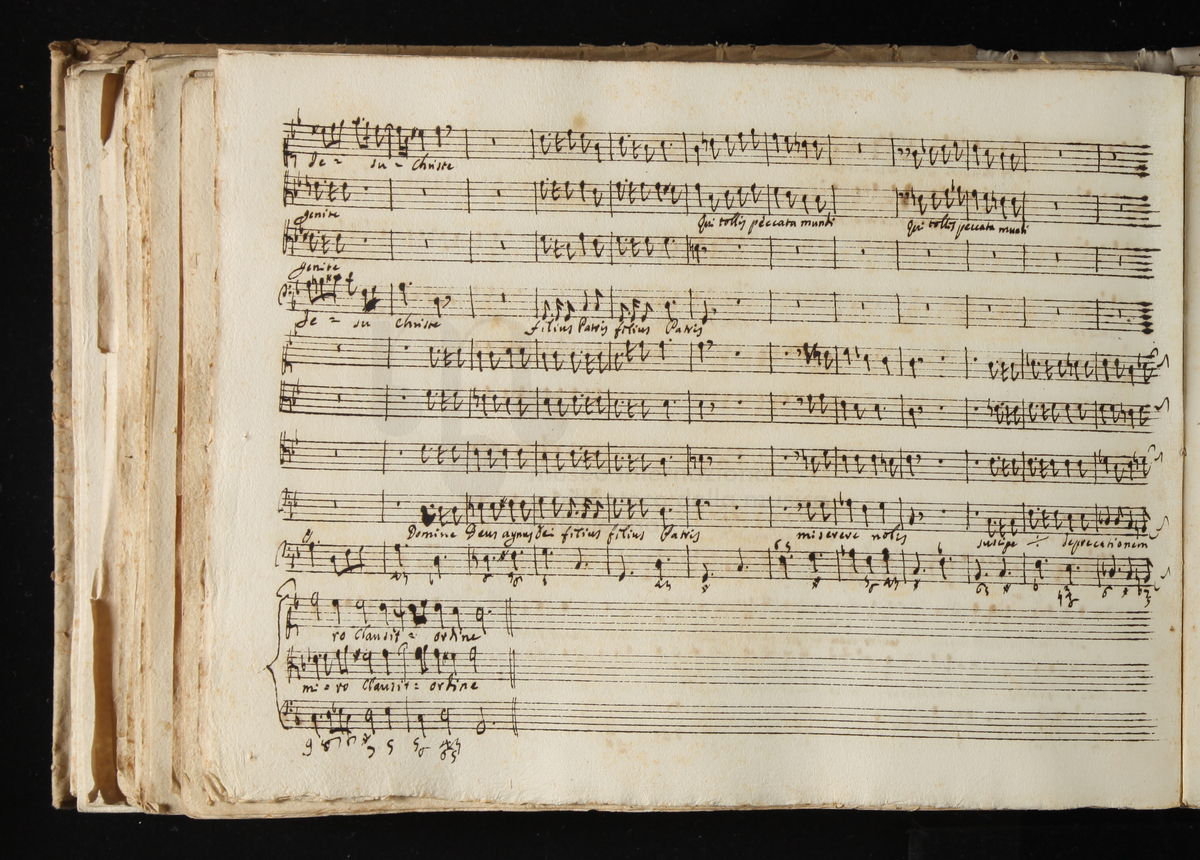 Je = su = Christe
genite
Qui tollis peccata mundi Qui tollis peccata mundi
genite
Je = su Christe filius Patris filius Patris
Domine Deus agnus dei filius filius Patris miserere nobis suscipe deprecationem
ro Clausit = ordine
mi = ro Clausit = ordine